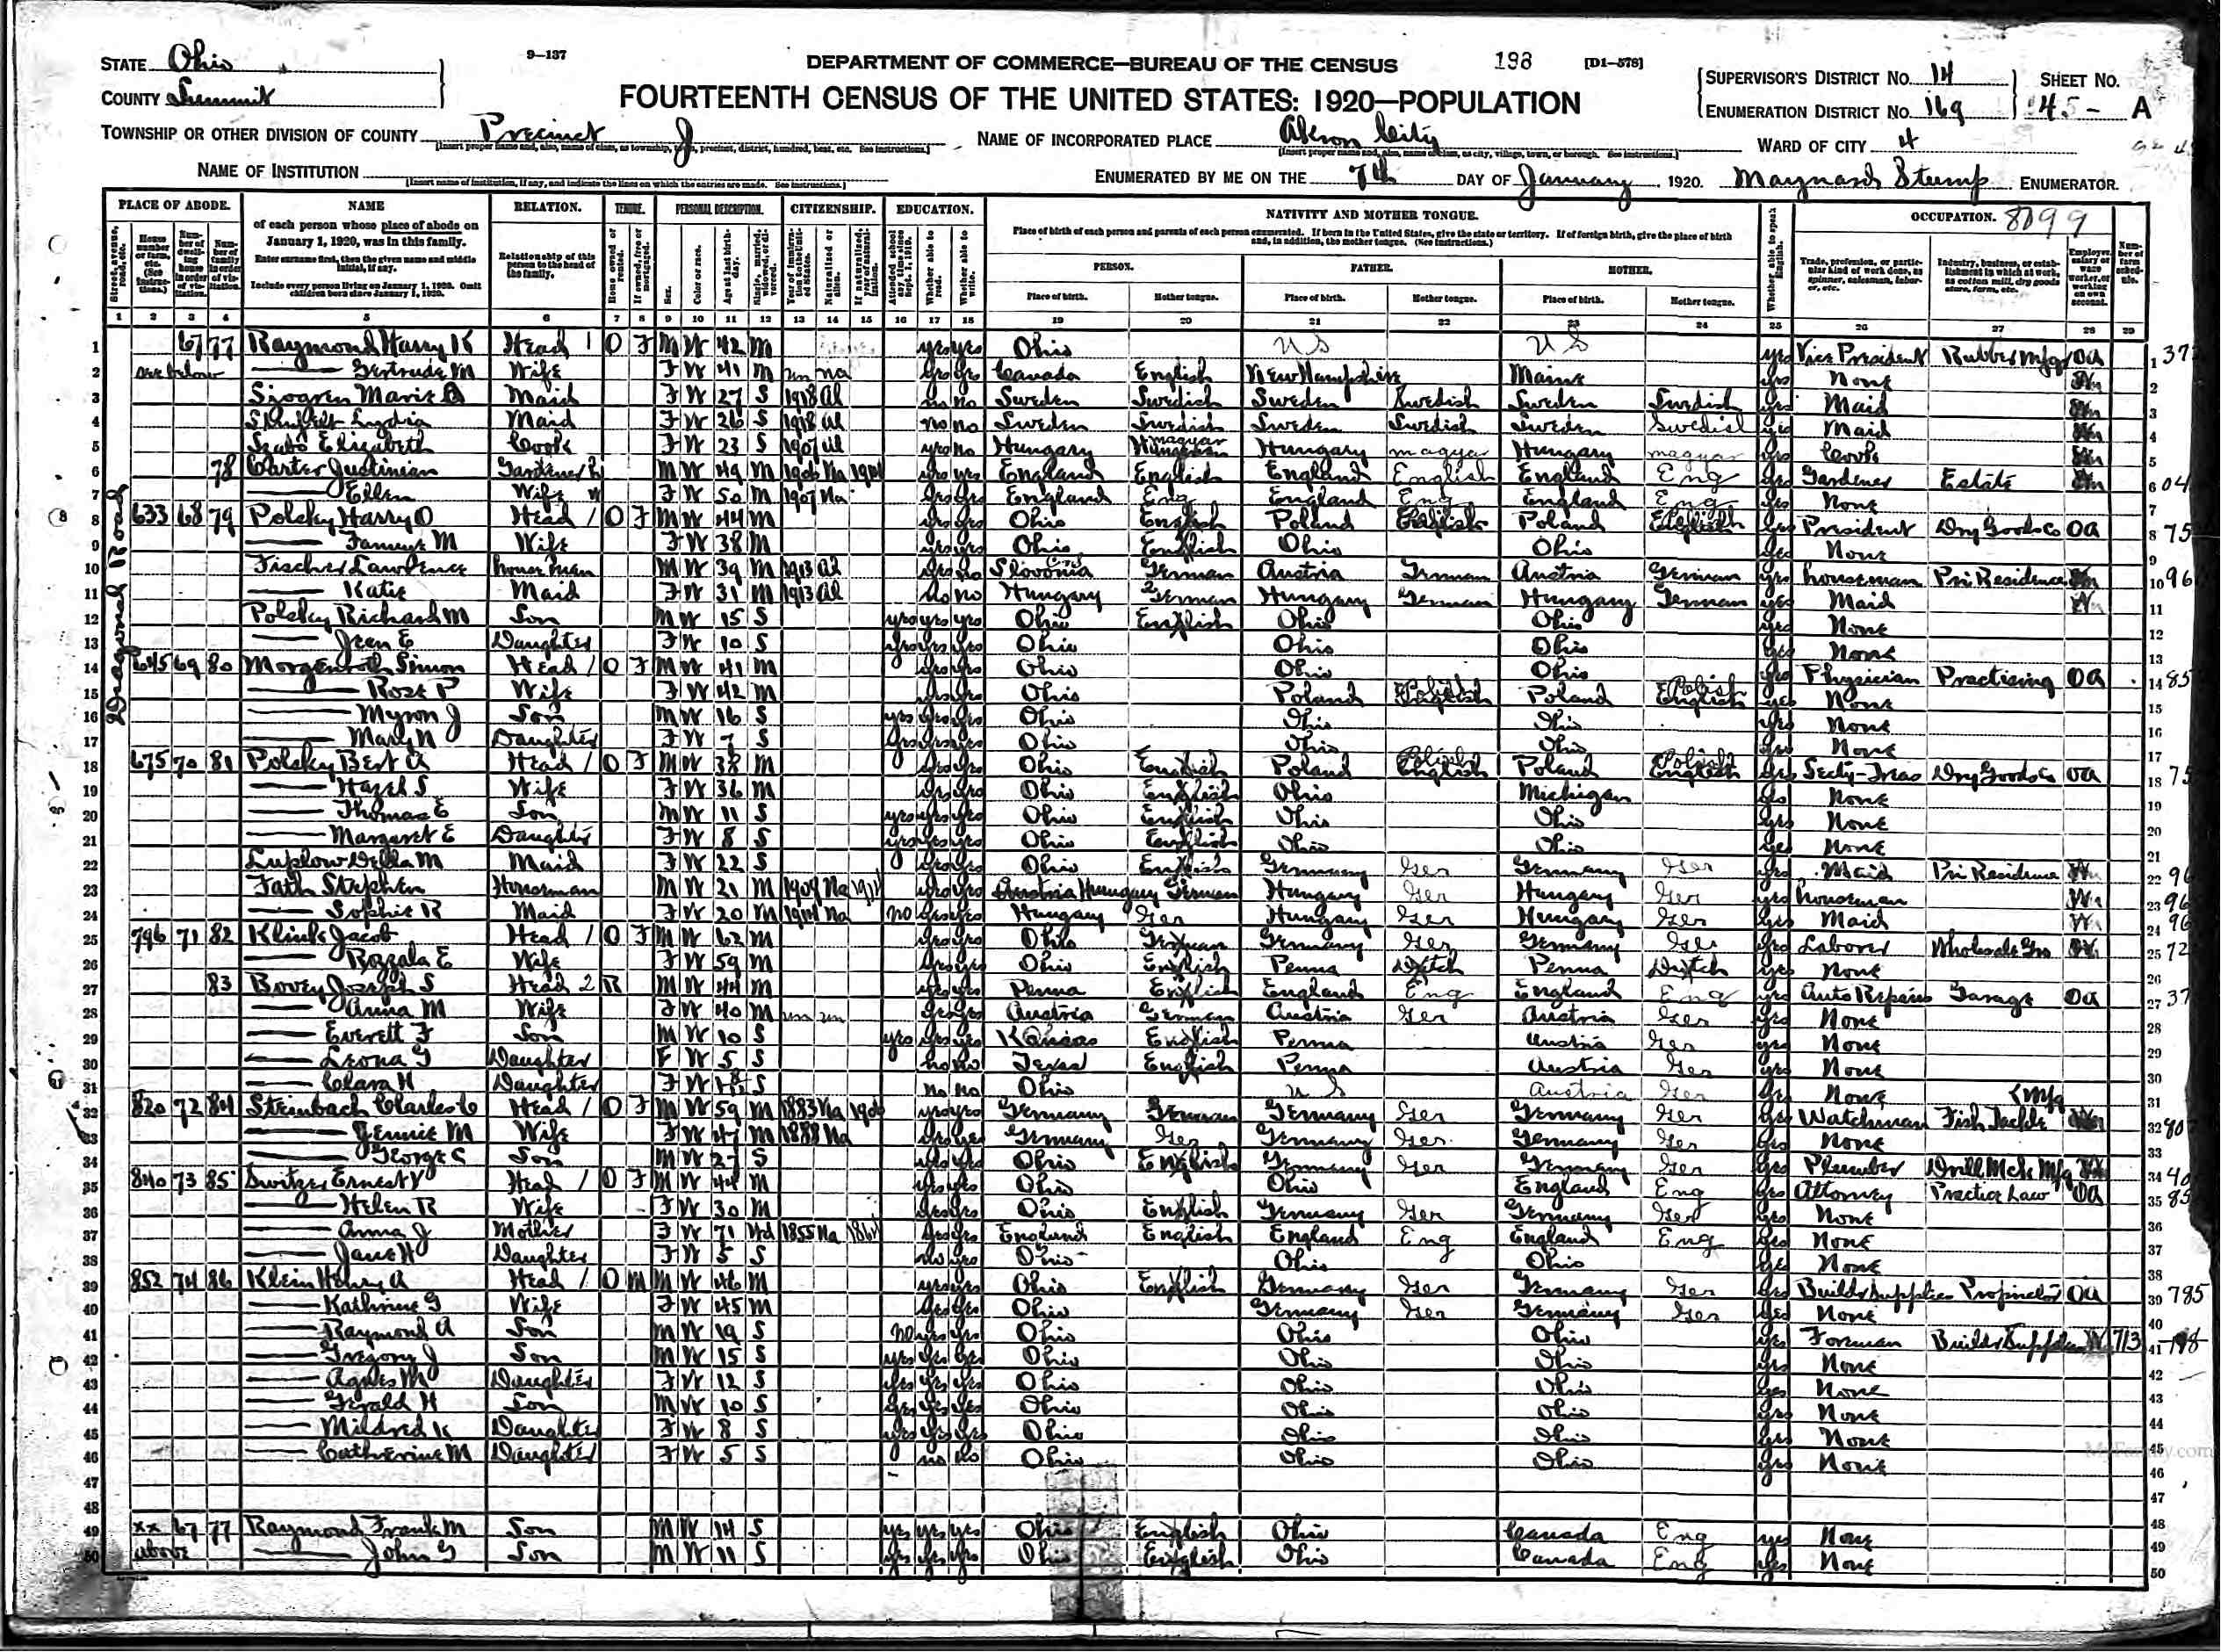 STATE Ohio
9—137
DEPARTMENT OF COMMERCE—BUREAU OF THE CENSUS
198
[D1—578]
COUNTY Summit
FOURTEENTH CENSUS OF THE UNITED STATES: 1920—POPULATION
SUPERVISOR'S DISTRICT No. 14
SHEET No.
ENUMERATION DISTRICT No. 169
45- A
TOWNSHIP OR OTHER DIVISION OF COUNTY Precinct J
NAME OF INCORPORATED PLACE Akron City
WARD OF CITY 4
NAME OF INSTITUTION
ENUMERATED BY ME ON THE 7th DAY OF January, 1920. Maynard Stump ENUMERATOR.
PLACE OF ABODE. NAME RELATION. TENURE. PERSONAL DESCRIPTION. CITIZENSHIP. EDUCATION. NATIVITY AND MOTHER TONGUE. OCCUPATION. 8099
of each person whose place of abode on January 1, 1920, was in this family.
Enter surname first, then the given name and middle initial, if any.
Include every person living on January 1, 1920. Omit children born since January 1, 1920.
Relationship of this person to the head of the family.
Place of birth of each person and parents of each person enumerated. If born in the United States, give the state or territory. If of foreign birth, give the place of birth and, in addition, the mother tongue. (See Instructions.)
PERSON. FATHER. MOTHER.
Place of birth. Mother tongue. Place of birth. Mother tongue. Place of birth. Mother tongue.
1 2 3 4 5 6 7 8 9 10 11 12 13 14 15 16 17 18 19 20 21 22 23 24 25 26 27 28 29
Diagonal Road
1 67 77 Raymond Harry K Head 1 O F M W 42 M yes yes Ohio U S U S yes Vice President Rubber Mfg OA
2 see below Gertrude M Wife F W 41 M un na yes yes Canada English New Hampshire Maine yes None
3 Sjogren Marie Maid F W 27 S 1918 al no no Sweden Swedish Sweden Swedish Sweden Swedish yes Maid
4 Lydia Maid F W 26 S 1918 al no no Sweden Swedish Sweden Swedish Sweden Swedish yes Maid
5 Szabo Elizabeth Cook F W 23 S 1907 al yes no Hungary magyar Hungary magyar Hungary magyar yes Cook
6 78 Carter Justinian Gardener M W 49 M 1906 Na yes yes England English England English England Eng yes Gardener Estate
7 Ellen Wife F W 50 M 1907 Na yes yes England Eng England Eng England Eng yes None
8 633 68 79 Polsky Harry O Head 1 O F M W 44 M yes yes Ohio English Poland Poland yes President Dry Goods Co OA
9 M Wife F W 38 M yes yes Ohio English Ohio Ohio yes None
10 Fischer Lawrence houseman M W 39 M 1913 al yes no Slovonia German Austria German Austria German yes houseman Pri Residence
11 Katie Maid F W 31 M 1913 al no no Hungary German Hungary German Hungary German yes Maid
12 Polsky Richard M Son M W 15 S yes yes yes Ohio English Ohio Ohio yes None
13 Jean E Daughter F W 10 S yes yes yes Ohio Ohio Ohio yes None
14 645 69 80 Morgenroth Simon Head 1 O F M W 41 M yes yes Ohio Ohio Ohio yes Physician Practising OA
15 Rose P Wife F W 42 M yes yes Ohio Poland Polish Poland Polish yes None
16 Myron J Son M W 16 S yes yes yes Ohio Ohio Ohio yes None
17 Mary N Daughter F W 7 S yes yes yes Ohio Ohio Ohio yes None
18 675 70 81 Polsky Bert A Head 1 O F M W 38 M yes yes Ohio English Poland Polish Poland Polish yes Secty-Treas Dry Goods Co OA
19 Hazel S Wife F W 36 M yes yes Ohio English Ohio Michigan yes None
20 Thomas E Son M W 11 S yes yes yes Ohio English Ohio Ohio yes None
21 Margaret E Daughter F W 8 S yes yes yes Ohio English Ohio Ohio yes None
22 Luplow Della M Maid F W 22 S yes yes Ohio English Germany Ger Germany Ger yes Maid Pri Residence
23 Fath Stephen Houseman M W 21 M 1909 Na yes yes Hungary German Hungary Ger Hungary Ger yes houseman
24 Sophie R Maid F W 20 M 1914 Na no yes yes Hungary Ger Hungary Ger Hungary Ger yes Maid
25 796 71 82 Klink Jacob Head 1 O F M W 62 M yes yes Ohio German Germany Ger Germany Ger yes Laborer Wholesale Gro
26 Rozzala E Wife F W 59 M yes yes Ohio English Penna Dutch Penna Dutch yes None
27 83 Bovey Joseph S Head 2 R M W 44 M yes yes Penna English England Eng England Eng yes Auto Repairs Garage OA
28 Anna M Wife F W 40 M un un yes yes Austria German Austria Ger Austria Ger yes None
29 Everett F Son M W 10 S yes yes yes Kansas English Penna Austria Ger yes None
30 Leona G Daughter F W 5 S no no Texas English Penna Austria Ger yes None
31 Clara H Daughter F W S no no Ohio U S Austria Ger yes None
32 820 72 84 Steinbach Charles C Head 1 O F M W 59 M 1883 Na yes yes Germany German Germany Ger Germany Ger yes Watchman Fish Tackle Mfg
33 Jennie M Wife F W 47 M 1888 Na yes yes Germany Ger Germany Ger Germany Ger yes None
34 George C Son M W 27 S yes yes Ohio English Germany Ger Germany Ger yes Plumber Drill Mch Mfg
35 840 73 85 Switzer Ernest V Head 1 O F M W 44 M yes yes Ohio Ohio England Eng yes Attorney Practice Law OA
36 Helen R Wife F W 30 M yes yes Ohio English Germany Ger Germany Ger yes None
37 Anna J Mother F W 71 Wd 1855 Na yes yes England English England Eng England Eng yes None
38 Jane H Daughter F W 5 S no yes Ohio Ohio Ohio yes None
39 852 74 86 Klein Henry A Head 1 O M M W 46 M yes yes Ohio English Germany Ger Germany Ger yes Builder Supplies Proprietor OA 785
40 Kathrine G Wife F W 45 M yes yes Ohio Germany Ger Germany Ger yes None
41 Raymond A Son M W 19 S no yes yes Ohio Ohio Ohio yes Foreman Builder Supplies W 713
42 Gregory J Son M W 15 S yes yes yes Ohio Ohio Ohio yes None
43 Agnes M Daughter F W 12 S yes yes yes Ohio Ohio Ohio yes None
44 Gerald H Son M W 10 S yes yes yes Ohio Ohio Ohio yes None
45 Mildred K Daughter F W 8 S yes yes yes Ohio Ohio Ohio yes None
46 Catherine M Daughter F W 5 S no no Ohio Ohio Ohio yes None
47
48
49 xx 67 77 Raymond Frank M Son M W 14 S yes yes yes Ohio English Ohio Canada Eng yes None
50 above John G Son M W 11 S yes yes yes Ohio English Ohio Canada Eng yes None
MyFamily.com